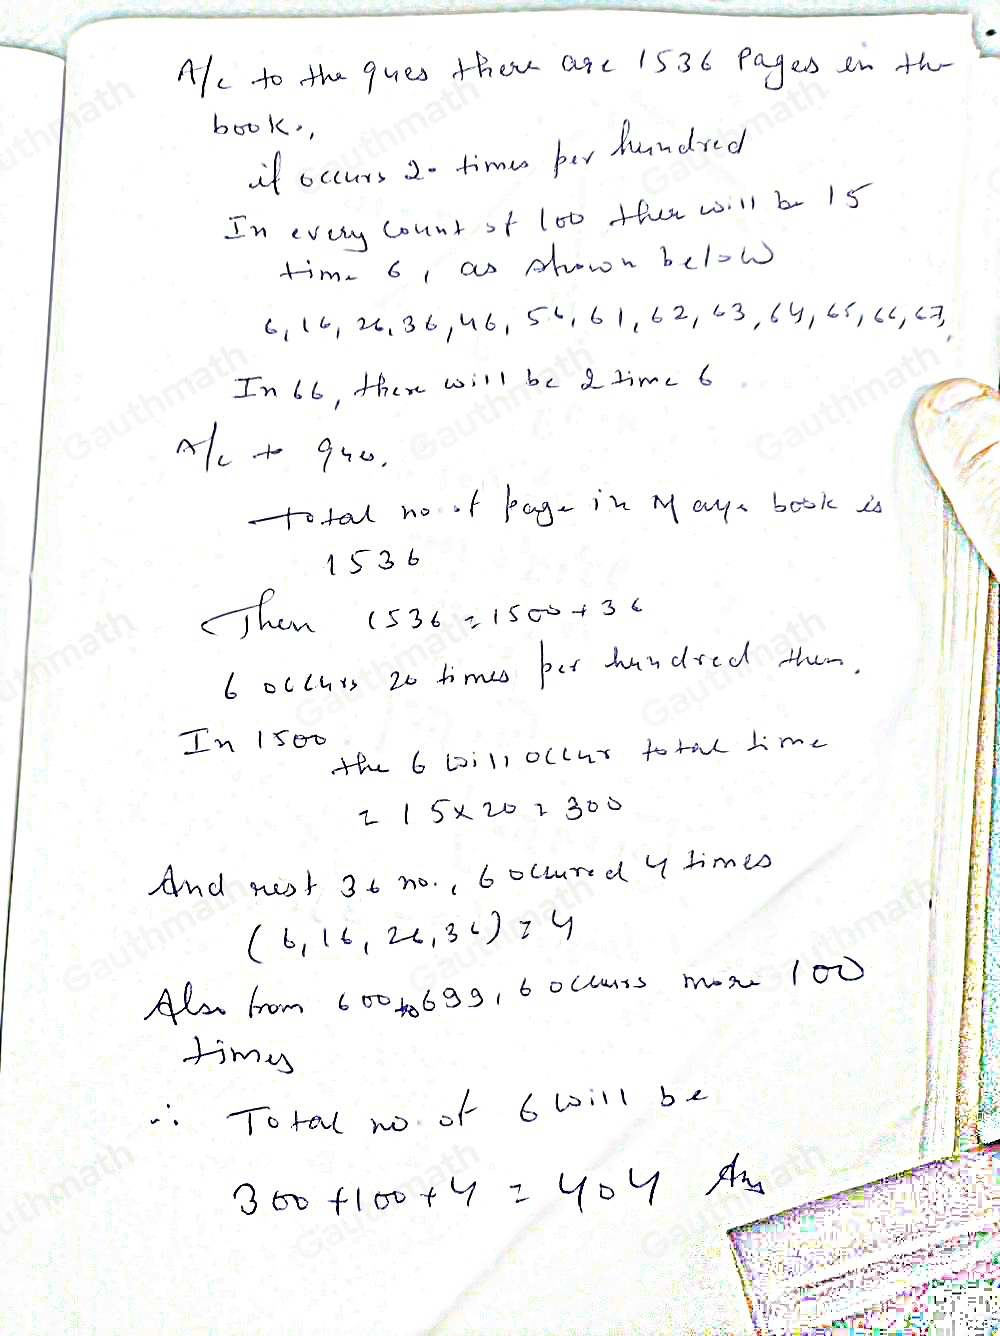 A/c to the ques there are 1536 Pages in the
book.,
if occurs 20 times per hundred
In every count of 100 ther will be 15
time 6, as shown below
6, 16, 26, 36, 46, 56, 61, 62, 63, 64, 65, 66, 67,
In 66, there will be 2 time 6
A/c to que.
Total no. of page in Maya book is
1536
Then 1536 = 1500 + 36
6 occurs 20 times per hundred then.
In 1500
the 6 will occur total time
= 15 x 20 = 300
And rest 36 no., 6 occured 4 times
(6, 16, 26, 36) = 4
Also from 600 to 699, 6 occurs more 100
times
∴ Total no. of 6 will be
300 + 100 + 4 = 404 Ans
Gauthmath